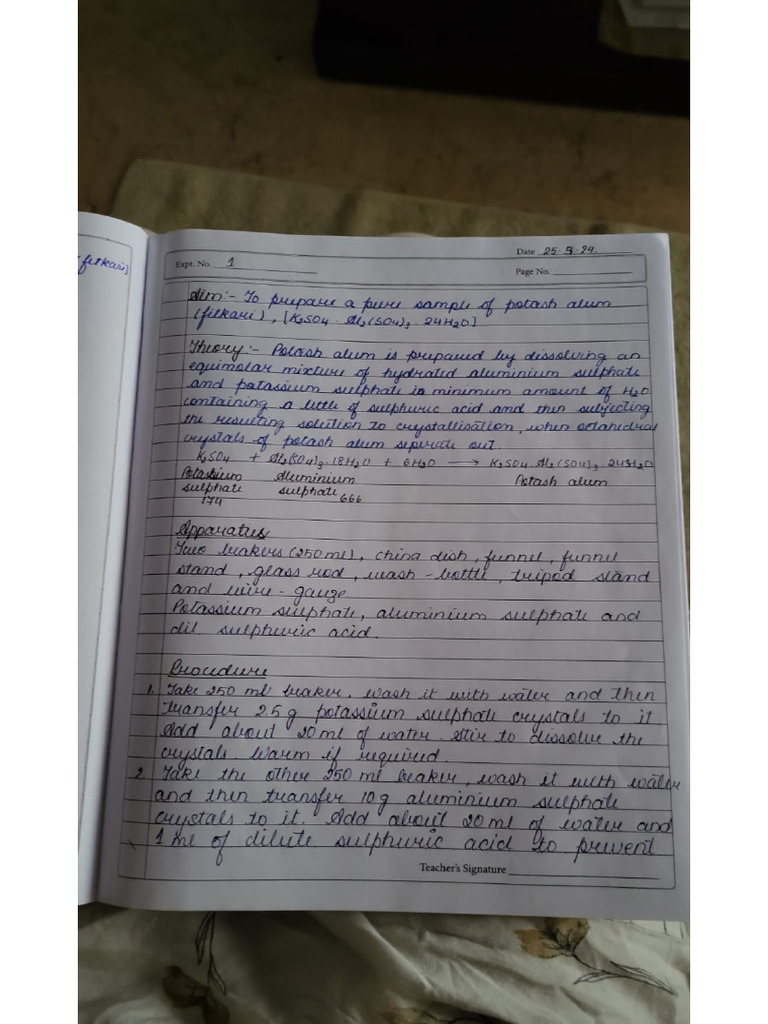 (fitkari)
Date 25-9-24.
Expt. No. 1
Page No.
Aim:- To prepare a pure sample of potash alum
(fitkari), [K2SO4 Al2(SO4)3 24H2O]
Theory:- Potash alum is prepared by dissolving an
equimolar mixture of hydrated aluminium sulphate
and potassium sulphate in minimum amount of H2O
containing a little of sulphuric acid and then subjecting
the resulting solution to crystallisation, when octahedral
crystals of potash alum seperate out.
K2SO4 + Al2(SO4)3 18H2O + 6H2O → K2SO4. Al2(SO4)3. 24H2O
Potassium Aluminium Potash alum
sulphate sulphate
174 666
Apparatus
Two beakers (250ml), china dish, funnel, funnel
stand, glass rod, wash-bottle, tripod stand
and wire-gauze
Potassium sulphate, aluminium sulphate and
dil. sulphuric acid.
Procedure
1. Take 250 ml beaker, wash it with water and then
transfer 2.5 g potassium sulphate crystals to it
Add about 20 ml of water. Stir to dissolve the
crystals. Warm if required.
2. Take the other 250 ml beaker, wash it with water
and then transfer 10g aluminium sulphate
crystals to it. Add about 20 ml of water and
1 ml of dilute sulphuric acid to prevent
Teacher's Signature